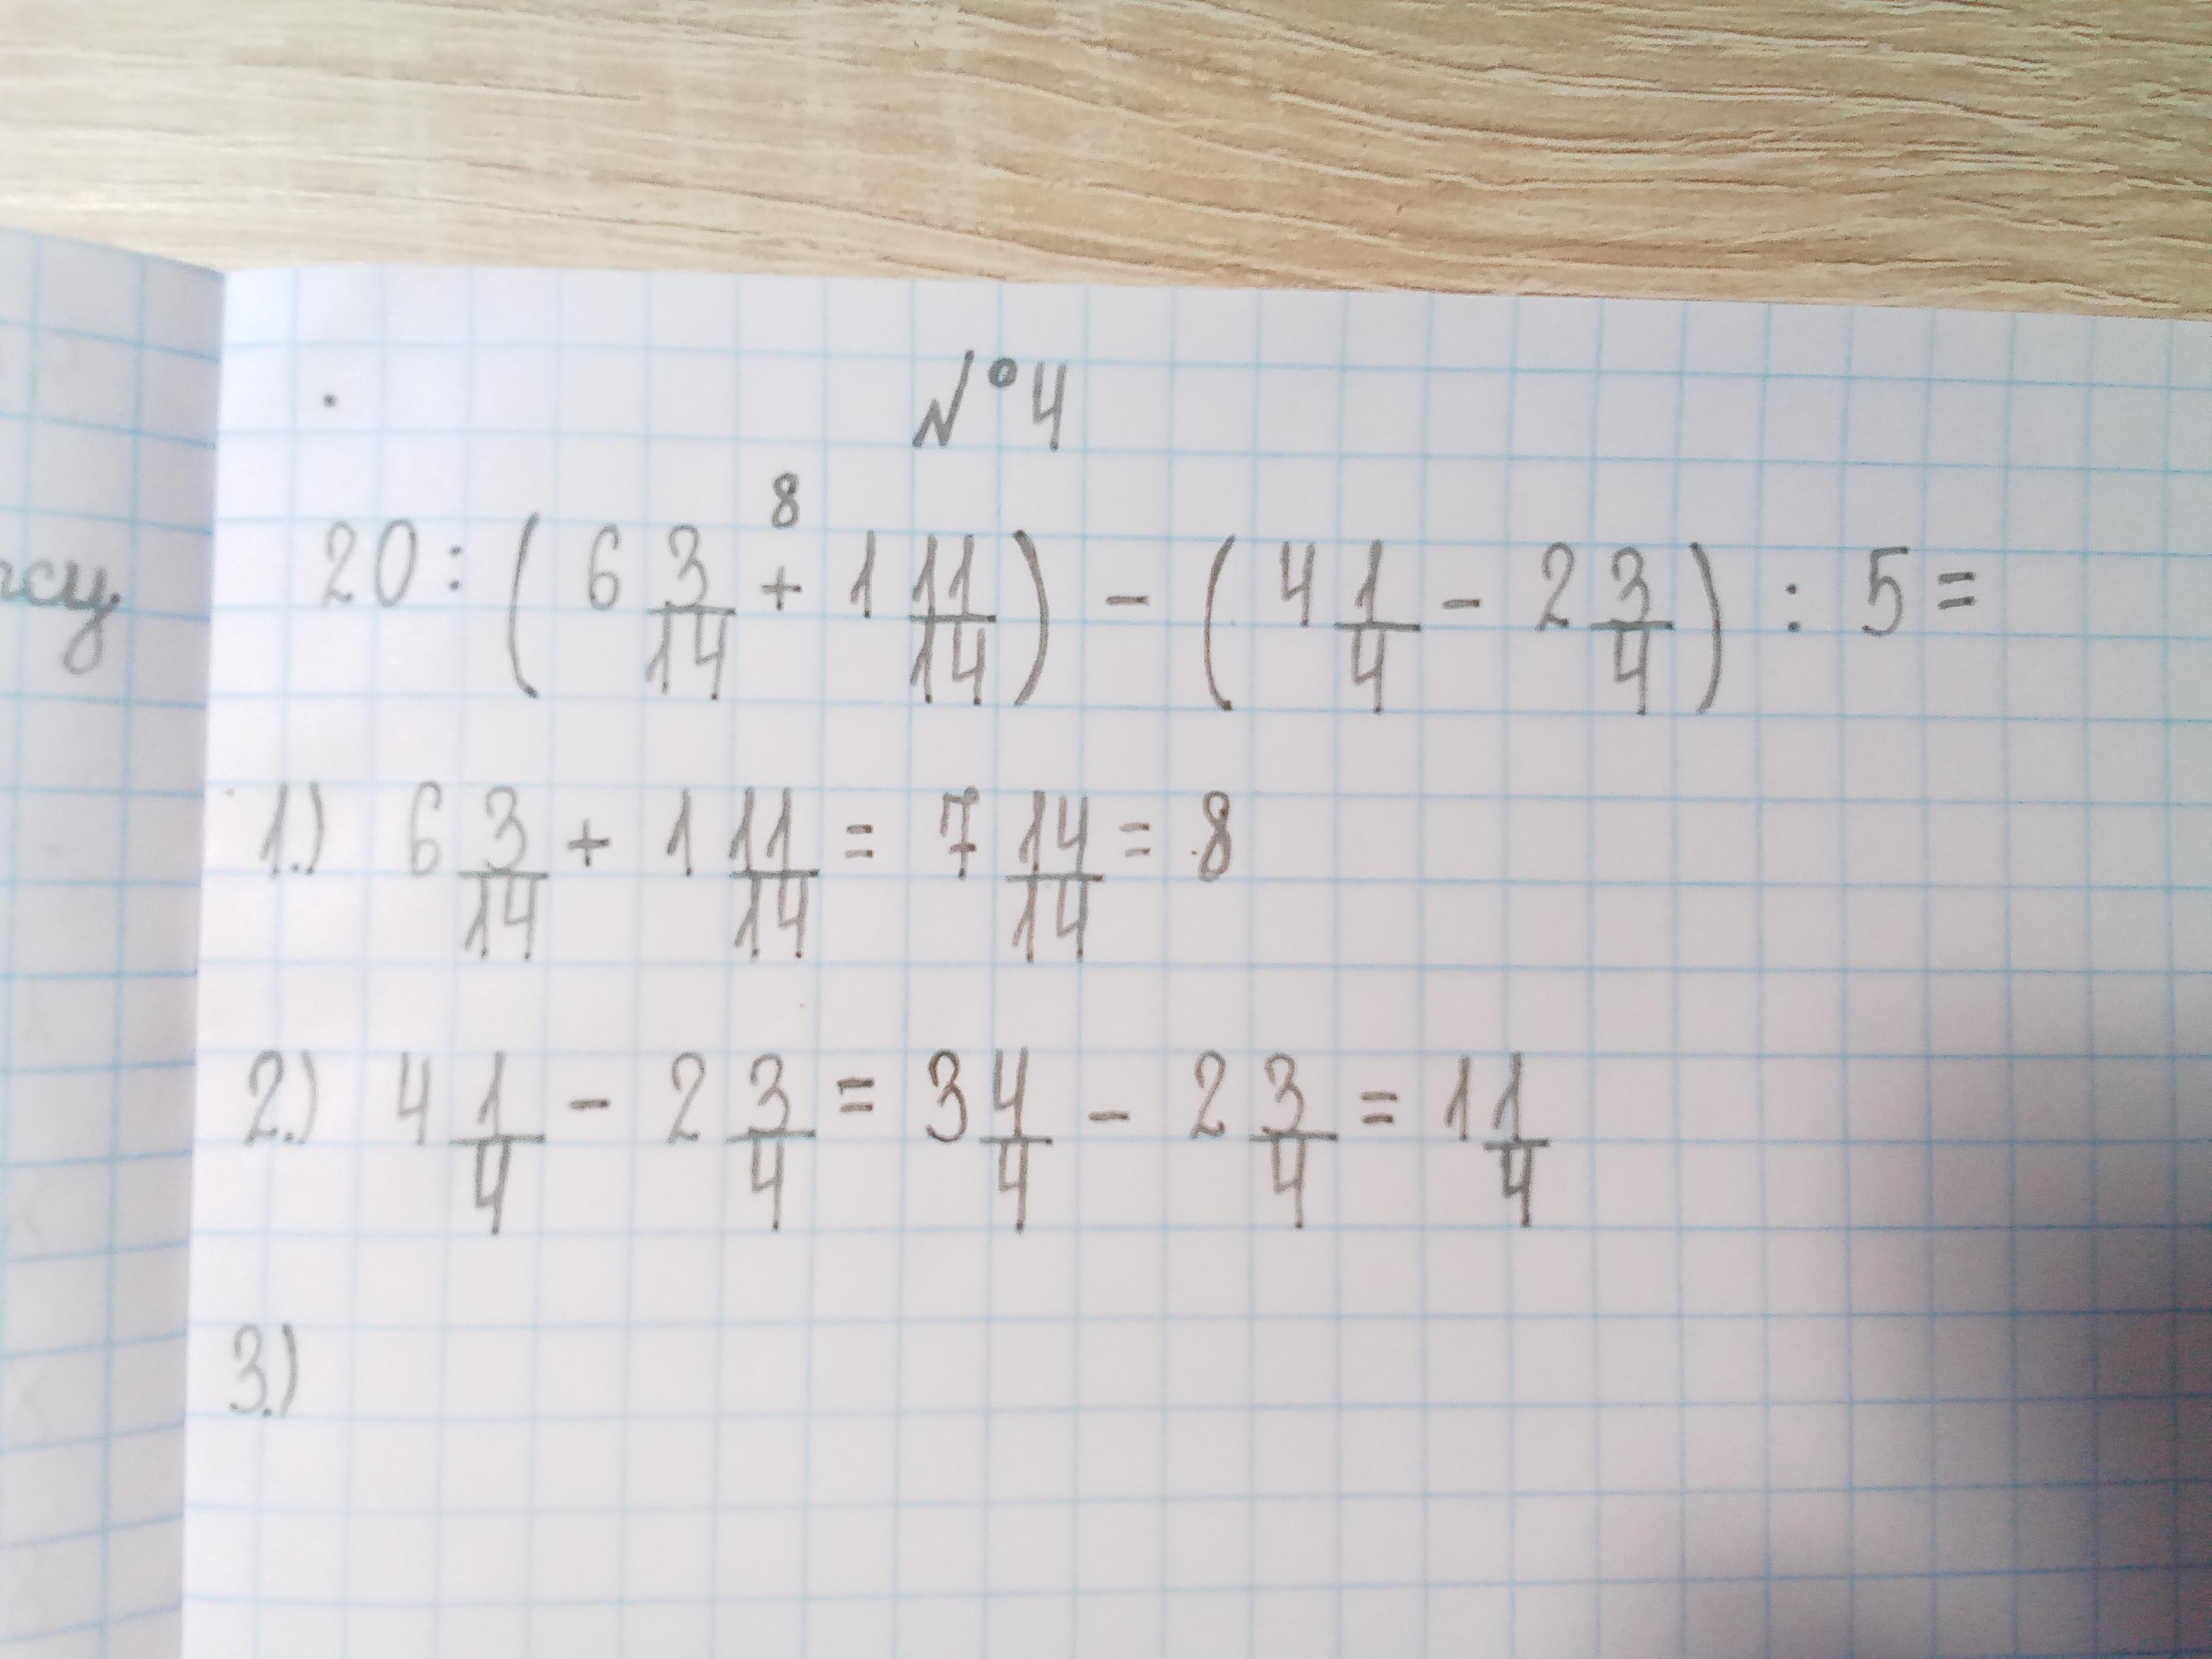 №4
8
20 : ( 6 3/14 + 1 11/14 ) - ( 4 1/4 - 2 3/4 ) : 5 =
1.) 6 3/14 + 1 11/14 = 7 14/14 = 8
2.) 4 1/4 - 2 3/4 = 3 4/4 - 2 3/4 = 1 1/4
3.)